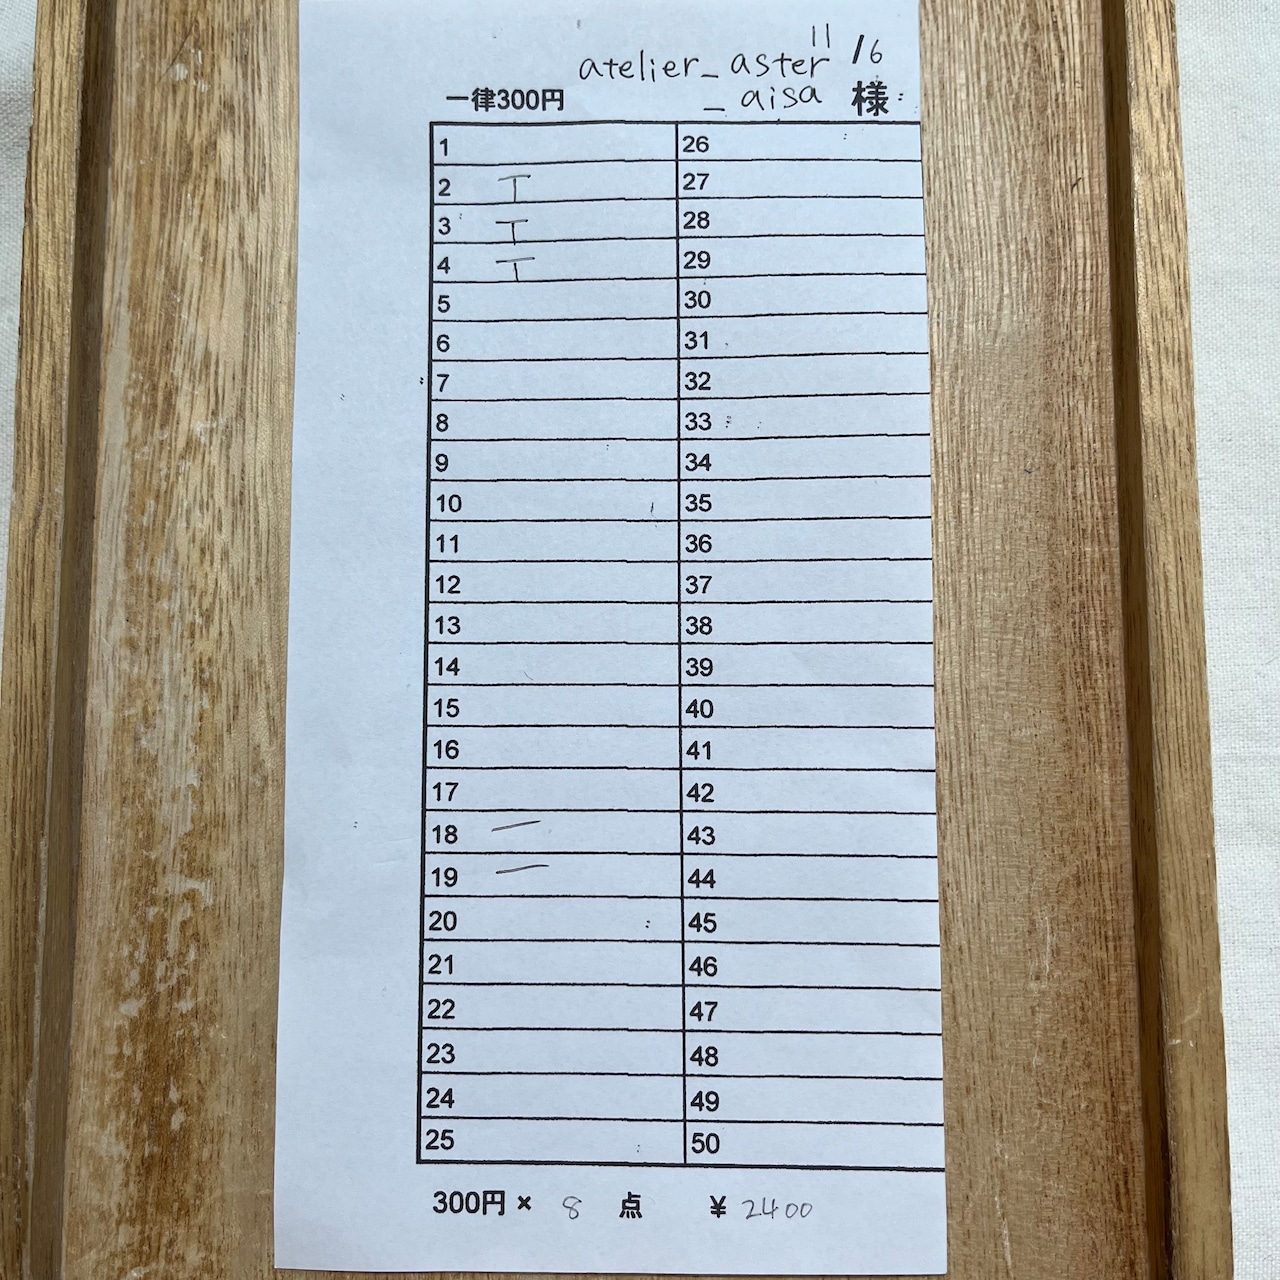 11/6
atelier_aster
_aisa 様
一律300円
1 26
2 T 27
3 T 28
4 T 29
5 30
6 31
7 32
8 33
9 34
10 35
11 36
12 37
13 38
14 39
15 40
16 41
17 42
18 一 43
19 一 44
20 45
21 46
22 47
23 48
24 49
25 50
300円 × 8 点 ¥ 2400